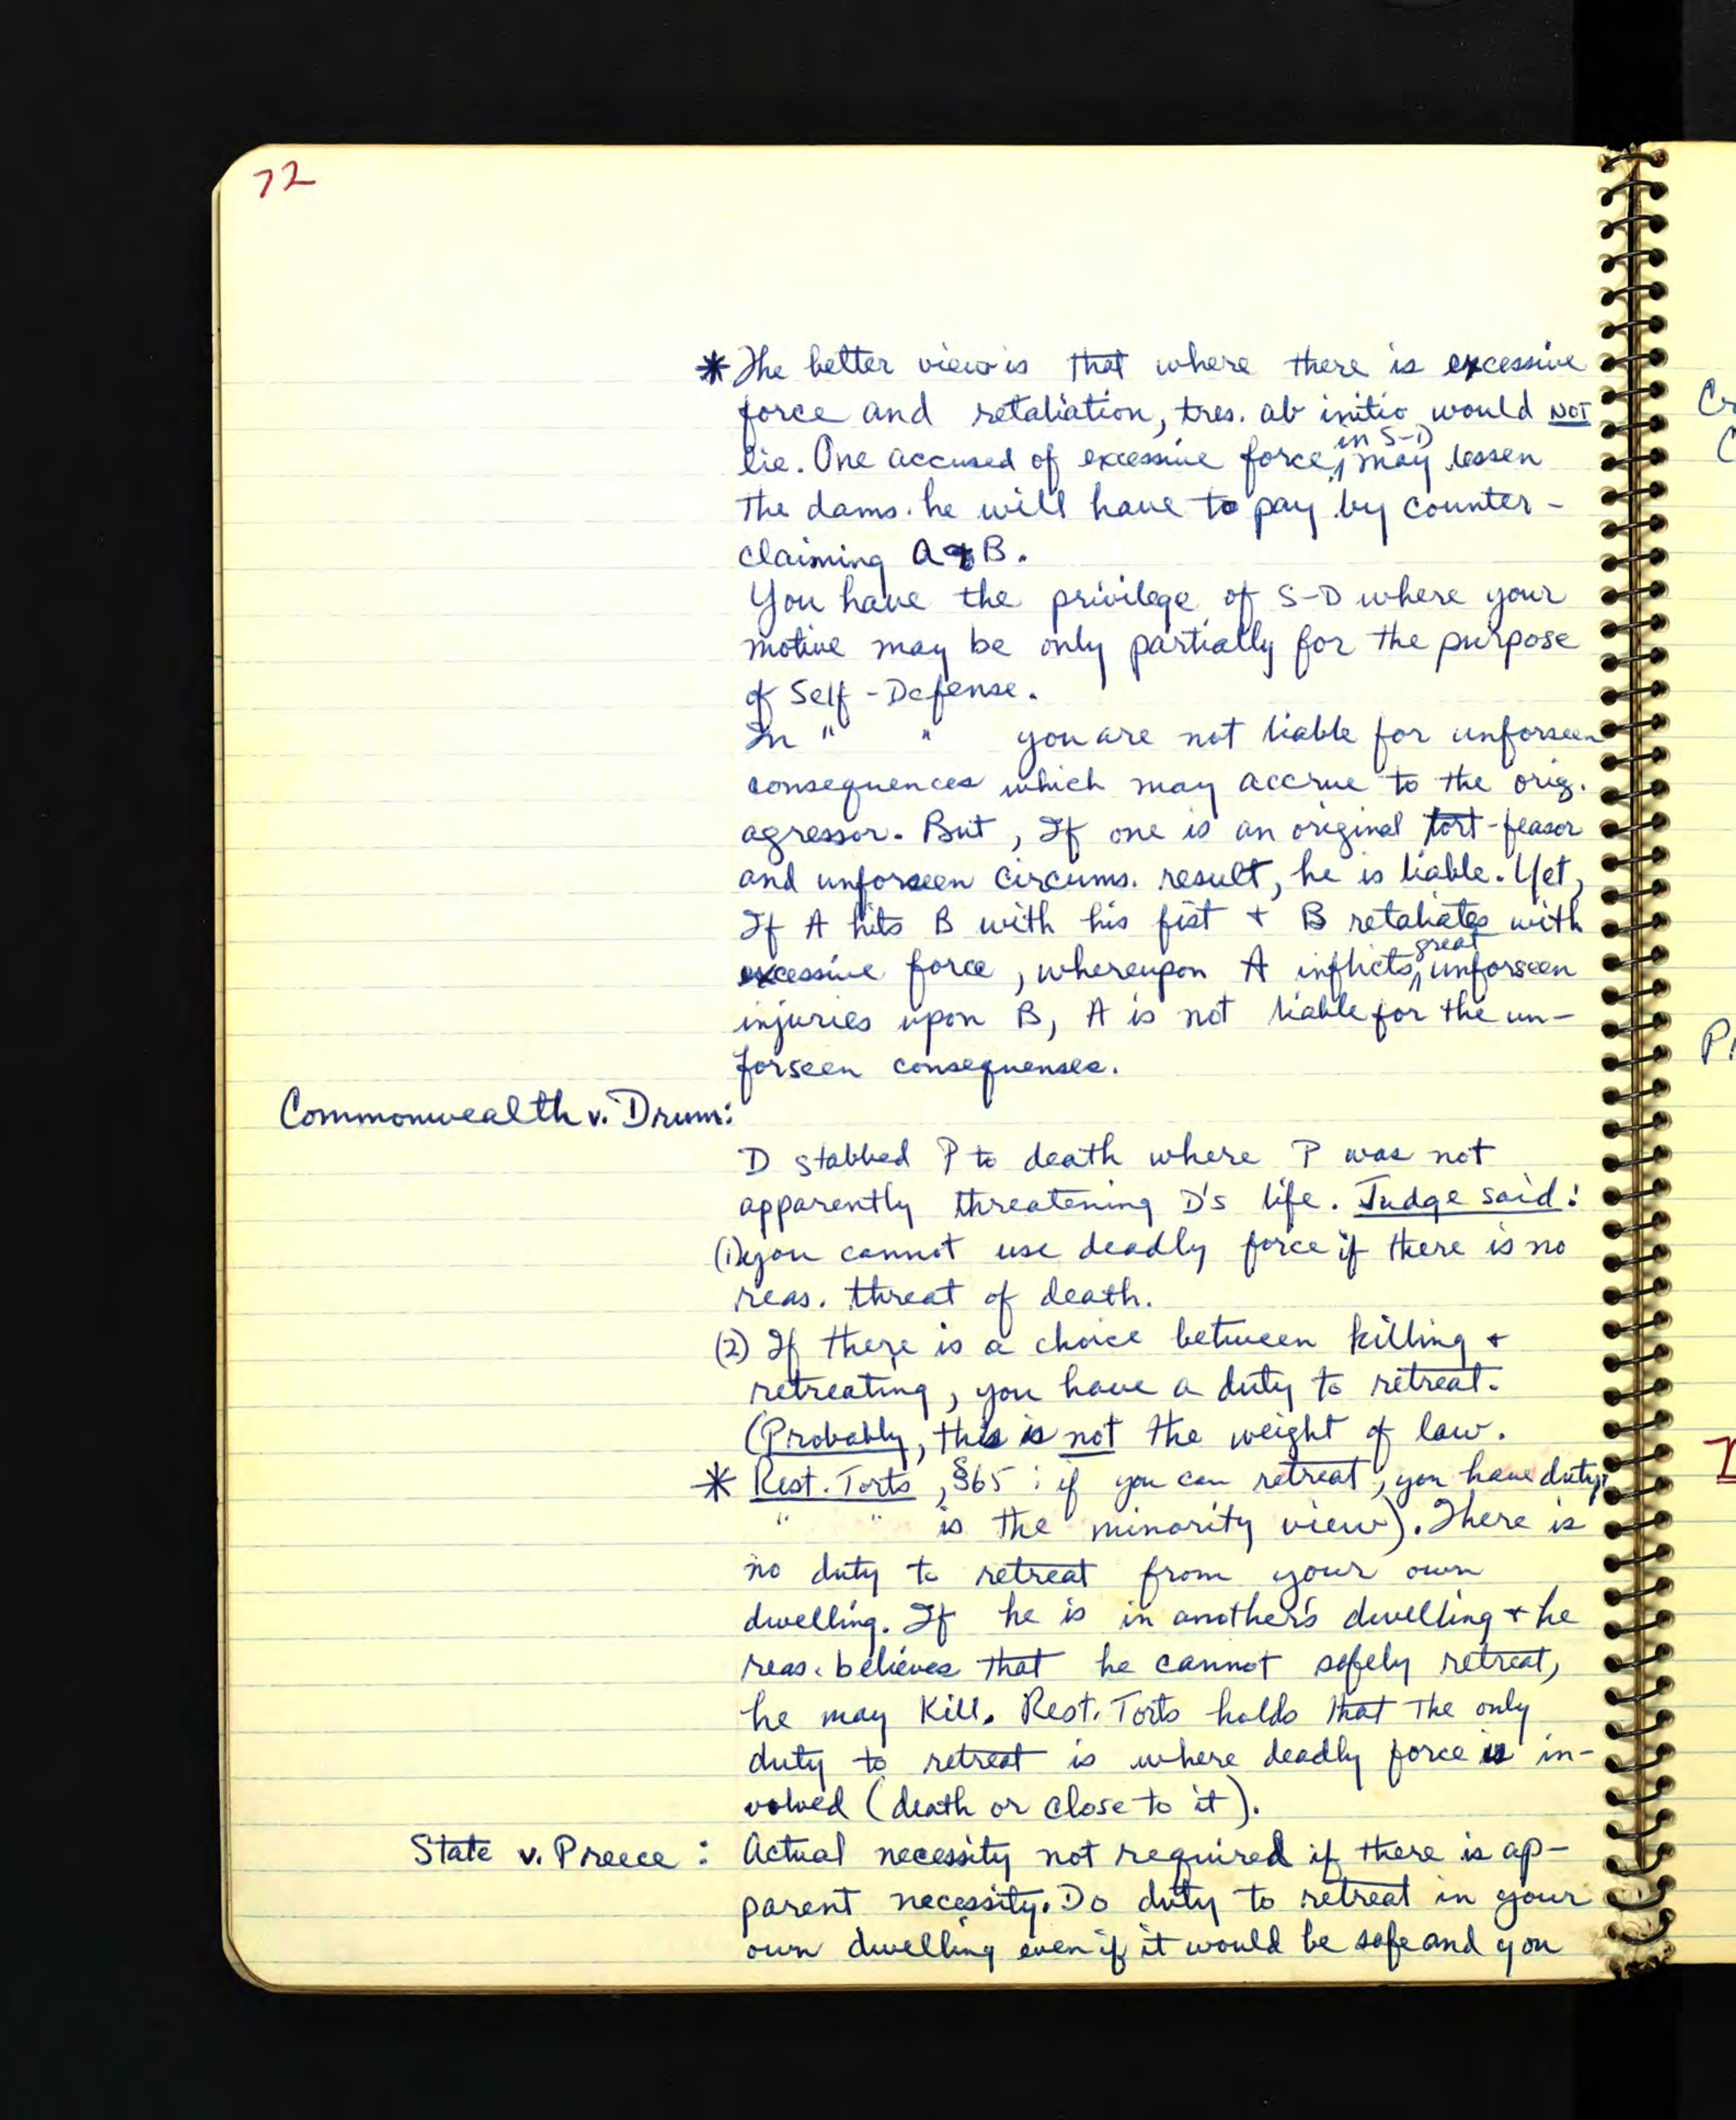 72
* The better view is that where there is excessive
force and retaliation, tres. ab initio would NOT
lie. One accused of excessive force, in S-D may lessen
the dams. he will have to pay by counter-
claiming A + B.
You have the privilege of S-D where your
motive may be only partially for the purpose
of Self-Defense.
In " " you are not liable for unforseen
consequences which may accrue to the orig.
agressor. But, If one is an original tort-feasor
and unforseen circums. result, he is liable. Yet,
If A hits B with his fist + B retaliates with
excessive force, whereupon A inflicts great unforseen
injuries upon B, A is not liable for the un-
forseen consequenses.
Commonwealth v. Drum:
D stabbed P to death where P was not
apparently threatening D's life. Judge said:
(1) you cannot use deadly force if there is no
reas. threat of death.
(2) If there is a choice between killing +
retreating, you have a duty to retreat.
(Probably, this is not the weight of law.
* Rest. Torts, §65: if you can retreat, you have duty;
" " is the minority view). There is
no duty to retreat from your own
dwelling. If he is in another's dwelling + he
reas. believes that he cannot safely retreat,
he may kill. Rest. Torts holds that the only
duty to retreat is where deadly force is in-
volved (death or close to it).
State v. Preece: Actual necessity not required if there is ap-
parent necessity. Do duty to retreat in your
own dwelling even if it would be safe and you
Cr
C
Pr